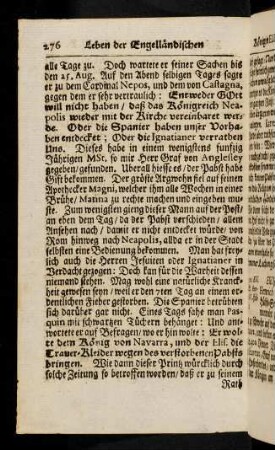 276 Leben der Engelländischen
alle Tage zu. Doch wartete er seiner Sachen bis
den 25. Aug. Auf den Abend selbigen Tages sagte
er zu dem Cardinal Nepos, und dem von Castagna,
gegen dem er sehr vertraulich: Entweder GOtt
will nicht haben / daß das Königreich Nea-
polis wieder mit der Kirche vereinbaret wer-
de. Oder die Spanier haben unser Vorha-
ben entdecket; Oder die Ignatianer verrathen
Uns. Dieses habe in einem wenigstens funfzig
Jährigen MSt. so mir Herr Graf von Anglesley
gegeben/gefunden. Uberall hiesse es / der Pabst habe
Gift bekommen. Der gröste Argwohn fiel auf seinen
Apothecker Magni, welcher ihm alle Wochen in einer
Brühe/ Manna zu rechte machen und eingeben mu-
ste. Zum wenigsten gieng dieser Mann auf der Post
an eben dem Tag / da der Pabst verschieden / allem
Ansehen nach / damit er nicht entdecket würde / von
Rom hinweg nach Neapolis, allda er in der Stadt
selbsten eine Bedienung bekommen. Man hat frey-
lich auch die Herren Jesuiten oder Ignatianer in
Verdacht gezogen: Doch kan für die Warheit dessen
niemand stehen. Mag wohl eine natürliche Kranck-
heit gewesen seyn / weil er den 7ten Tag an einem or-
dentlichen Fieber gestorben. Die Spanier betrüben
sich darüber gar nicht. Eines Tags sahe man Pas-
quin mit schwarzen Tüchern behänget: Und ant-
wortete er auf Befragen/ wo er hin wolte: Er wol-
te dem König von Navarra, und der Elis. die
Trauer-Kleider wegen des verstorbenen Pabsts
bringen. Wie dann dieser Printz würcklich durch
solche Zeitung so betroffen worden / daß er zu seinem
Rath